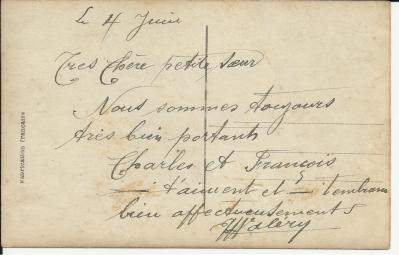 Le 4 Juin
Très Chère petite sœur
Nous sommes toujours
très bien portants
Charles et François
t'aiment et t'embrassent
bien affectueusement
Valéry
Fabrication Française